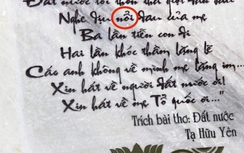 Đất nước tôi thon thả giọt đàn bầu
Nghe dịu nổi đau của mẹ
Ba lần tiễn con đi
Hai lần khóc thầm lặng lẽ
Các anh không về mình mẹ lặng im...
Xin hát về người đất nước ơi!
Xin hát về mẹ Tổ quốc ơi..."
Trích bài thơ: Đất nước
Tạ Hữu Yên